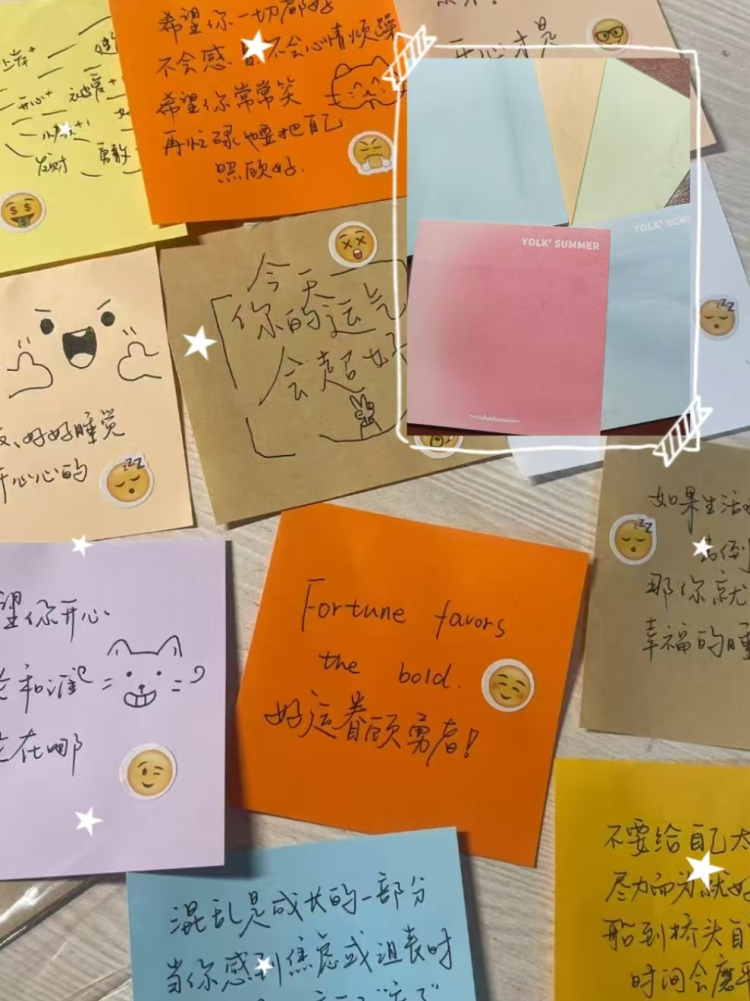 上岸+
开心+
被爱+
暴富+1
发财 勇敢
希望你一切都好
不会感冒不会心情烦躁
希望你常常笑
再忙碌也要把自己
照顾好.
开心才是
YOLK' SUMMER
YOLK' SUM
今天
你的运气
会超好
好好睡觉
开心心的
如果生活
击倒
那你就
幸福的睡
望你开心
和谁
在哪
Fortune favors
the bold.
好运眷顾勇者!
不要给自己太
尽力而为就好
船到桥头自
时间会磨平
混乱是成长的一部分
当你感到焦虑或沮丧时